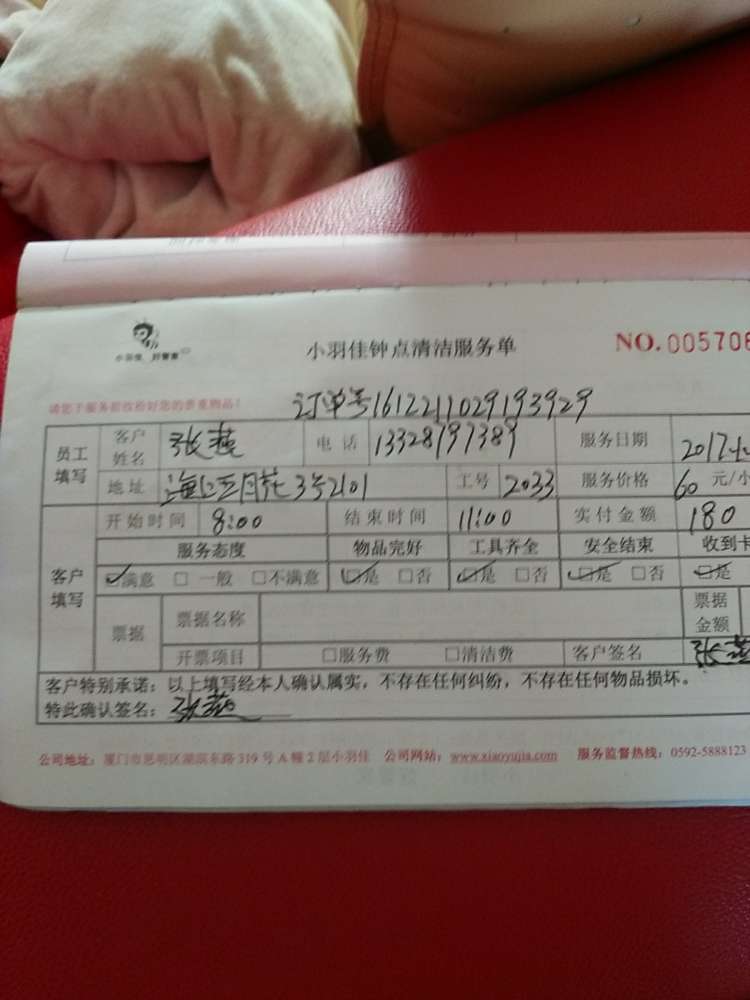 小羽佳 好管家
小羽佳钟点清洁服务单
NO. 005706
请您于服务前收检好您的贵重物品！
订单号161221102919 3929
员工填写 客户姓名 张燕 电话 13328197389 服务日期 2017.
地址 3号2101 工号 2033 服务价格 60 元/小
客户填写 开始时间 8:00 结束时间 11:00 实付金额 180
服务态度 物品完好 工具齐全 安全结束 收到卡
☑满意 □一般 □不满意 ☑是 □否 ☑是 □否 ☑是 □否 ☑是
票据 票据名称 票据金额
开票项目 □服务费 □清洁费 客户签名 张燕
客户特别承诺：以上填写经本人确认属实，不存在任何纠纷，不存在任何物品损坏。
特此确认签名：张燕
公司地址：厦门市思明区湖滨东路319号A幢2层小羽佳 公司网站：www.xiaoyujia.com 服务监督热线：0592-5888123